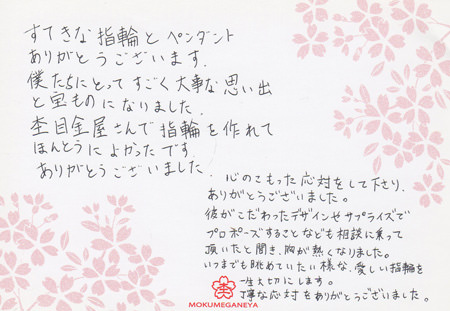 すてきな指輪とペンダント
ありがとうございます.
僕たちにとってすごく大事な思い出
と宝ものになりました.
杢目金屋さんで指輪を作れて
ほんとうによかったです
ありがとうございました.
心のこもった応対をして下さり、
ありがとうございました。
彼がこだわったデザインやサプライズで
プロポーズすることなども相談に乗って
頂いたと聞き、胸が熱くなりました。
いつまでも眺めていたい様な、愛しい指輪を
一生大切にします。
丁寧な応対をありがとうございました。
MOKUMEGANEYA